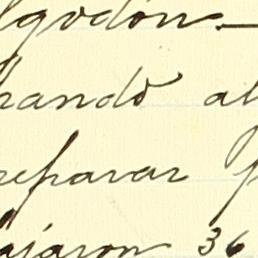 lgodón.—
hando al
reparar p
ajaron 36